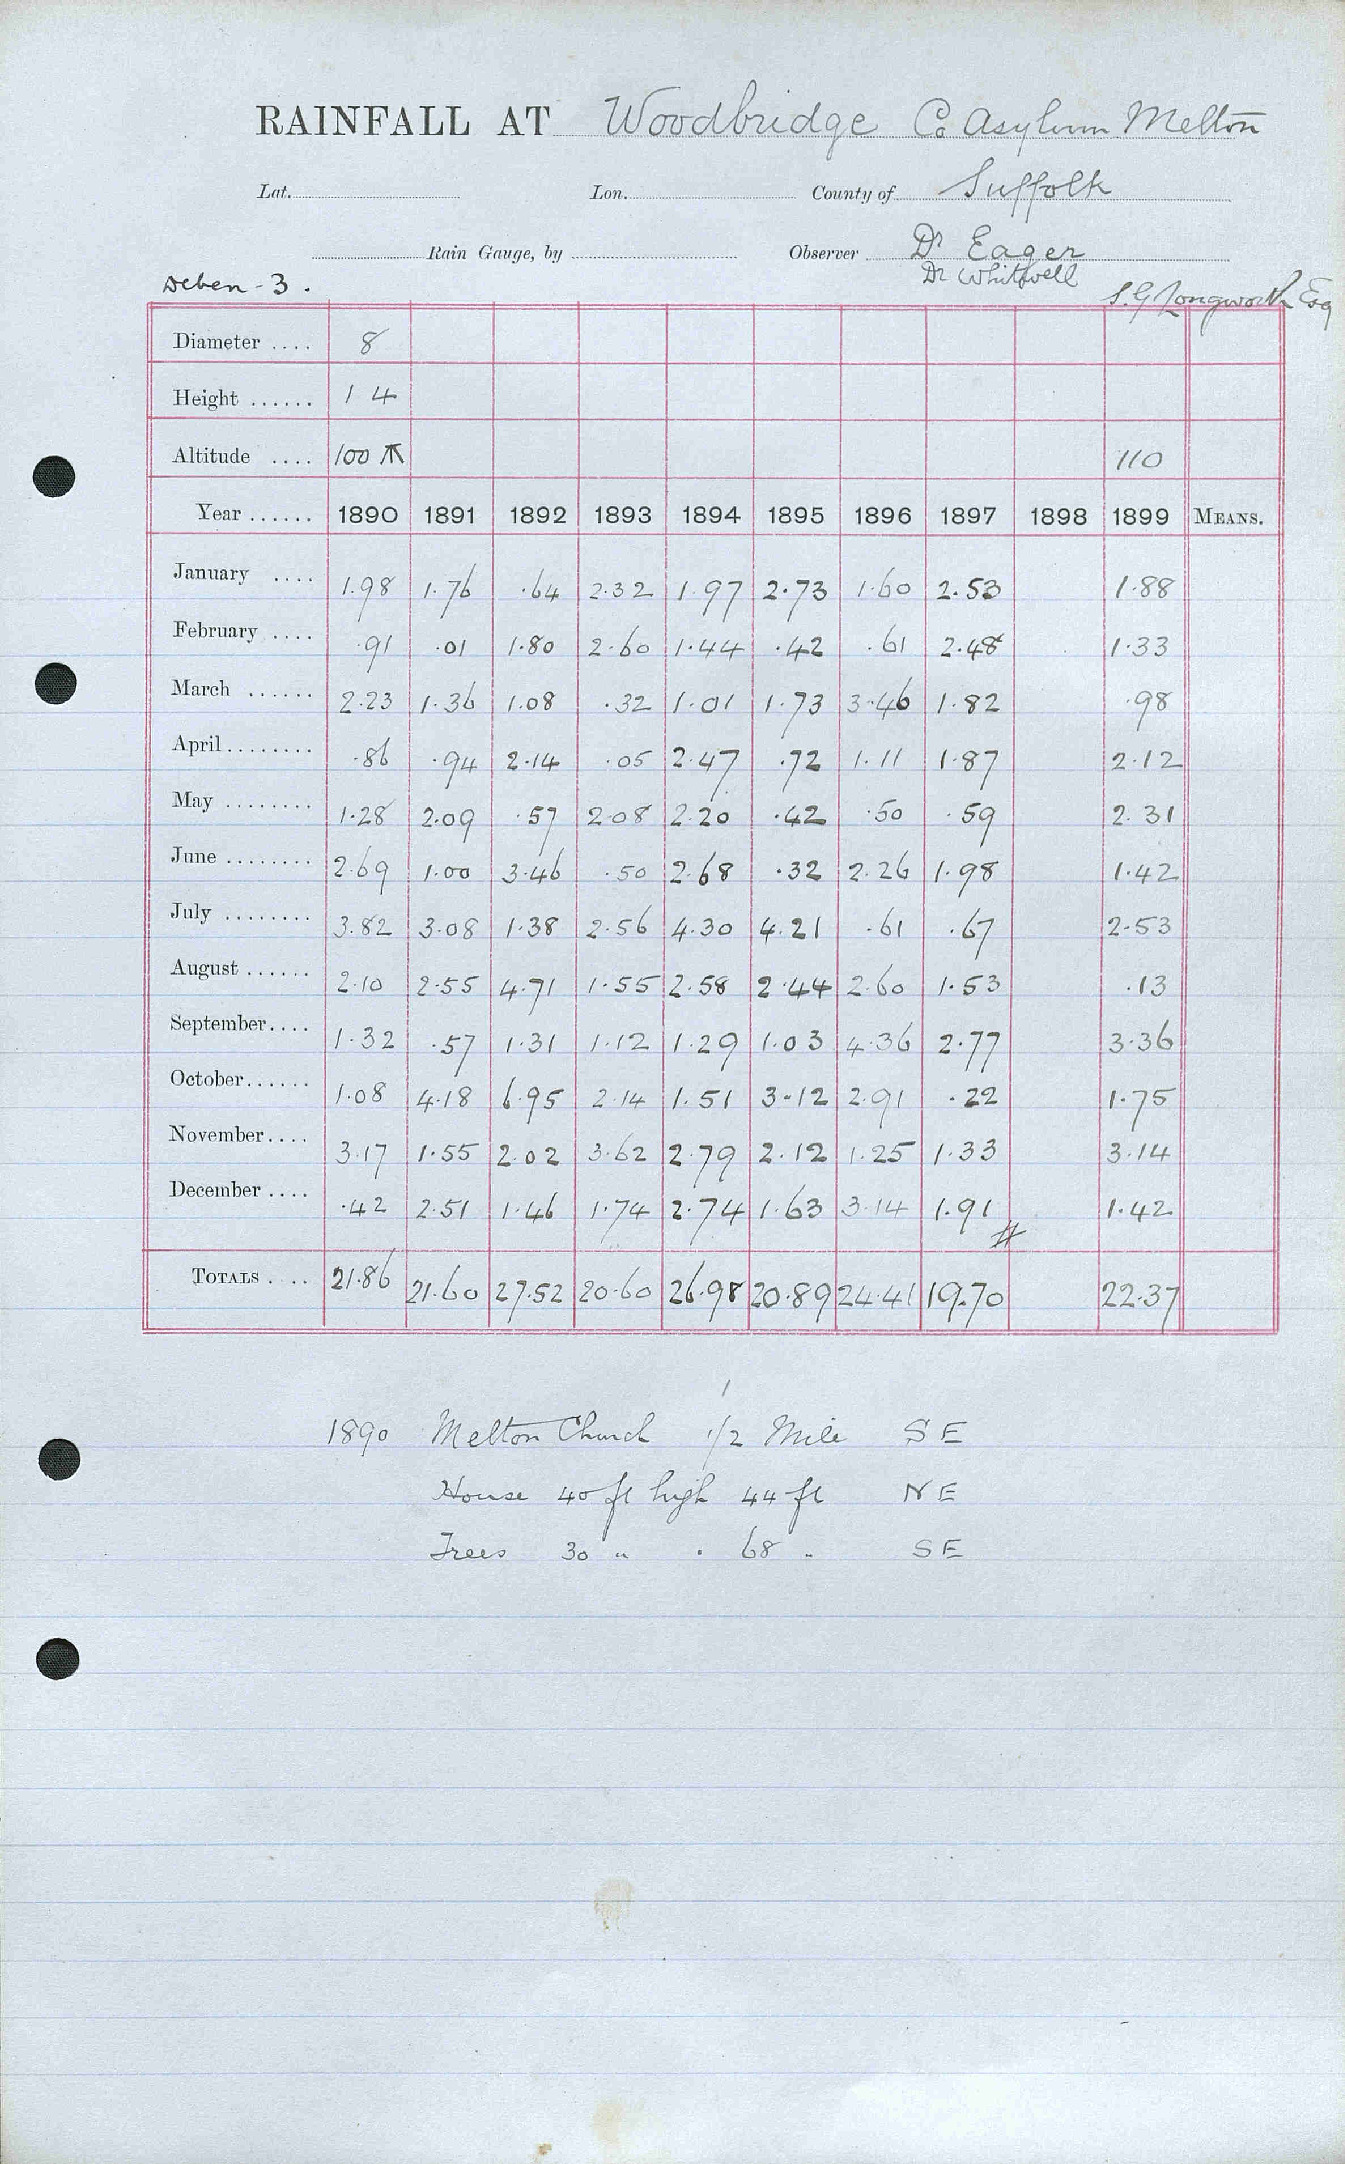 RAINFALL AT Woodbridge Co Asylum Melton
Lat. Lon. County of Suffolk
Rain Gauge, by Observer Dr Eager
Deben - 3. Dr Whitwell S. G Longworth Esq
Diameter .... 8
Height ...... 1 4
Altitude .... 100 110
Year ...... 1890 1891 1892 1893 1894 1895 1896 1897 1898 1899 MEANS.
January .... 1.98 1.76 .64 2.32 1.97 2.73 1.60 2.53 1.88
February .... .91 .01 1.80 2.60 1.44 .42 .61 2.48 1.33
March ...... 2.23 1.36 1.08 .32 1.01 1.73 3.46 1.82 .98
April........ .86 .94 2.14 .05 2.47 .72 1.11 1.87 2.12
May ........ 1.28 2.09 .57 2.08 2.20 .42 .50 .59 2.31
June ........ 2.69 1.00 3.46 .50 2.68 .32 2.26 1.98 1.42
July ........ 3.82 3.08 1.38 2.56 4.30 4.21 .61 .67 2.53
August ...... 2.10 2.55 4.71 1.55 2.58 2.44 2.60 1.53 .13
September.... 1.32 .57 1.31 1.12 1.29 1.03 4.36 2.77 3.36
October...... 1.08 4.18 6.95 2.14 1.51 3.12 2.91 .22 1.75
November.... 3.17 1.55 2.02 3.62 2.79 2.12 1.25 1.33 3.14
December .... .42 2.51 1.46 1.74 2.74 1.63 3.14 1.91 # 1.42
TOTALS .... 21.86 21.60 27.52 20.60 26.98 20.89 24.41 19.70 22.37
1890 Melton Church 1/2 Mile SE
House 40 ft high 44 ft NE
Trees 30 " . 68 " SE